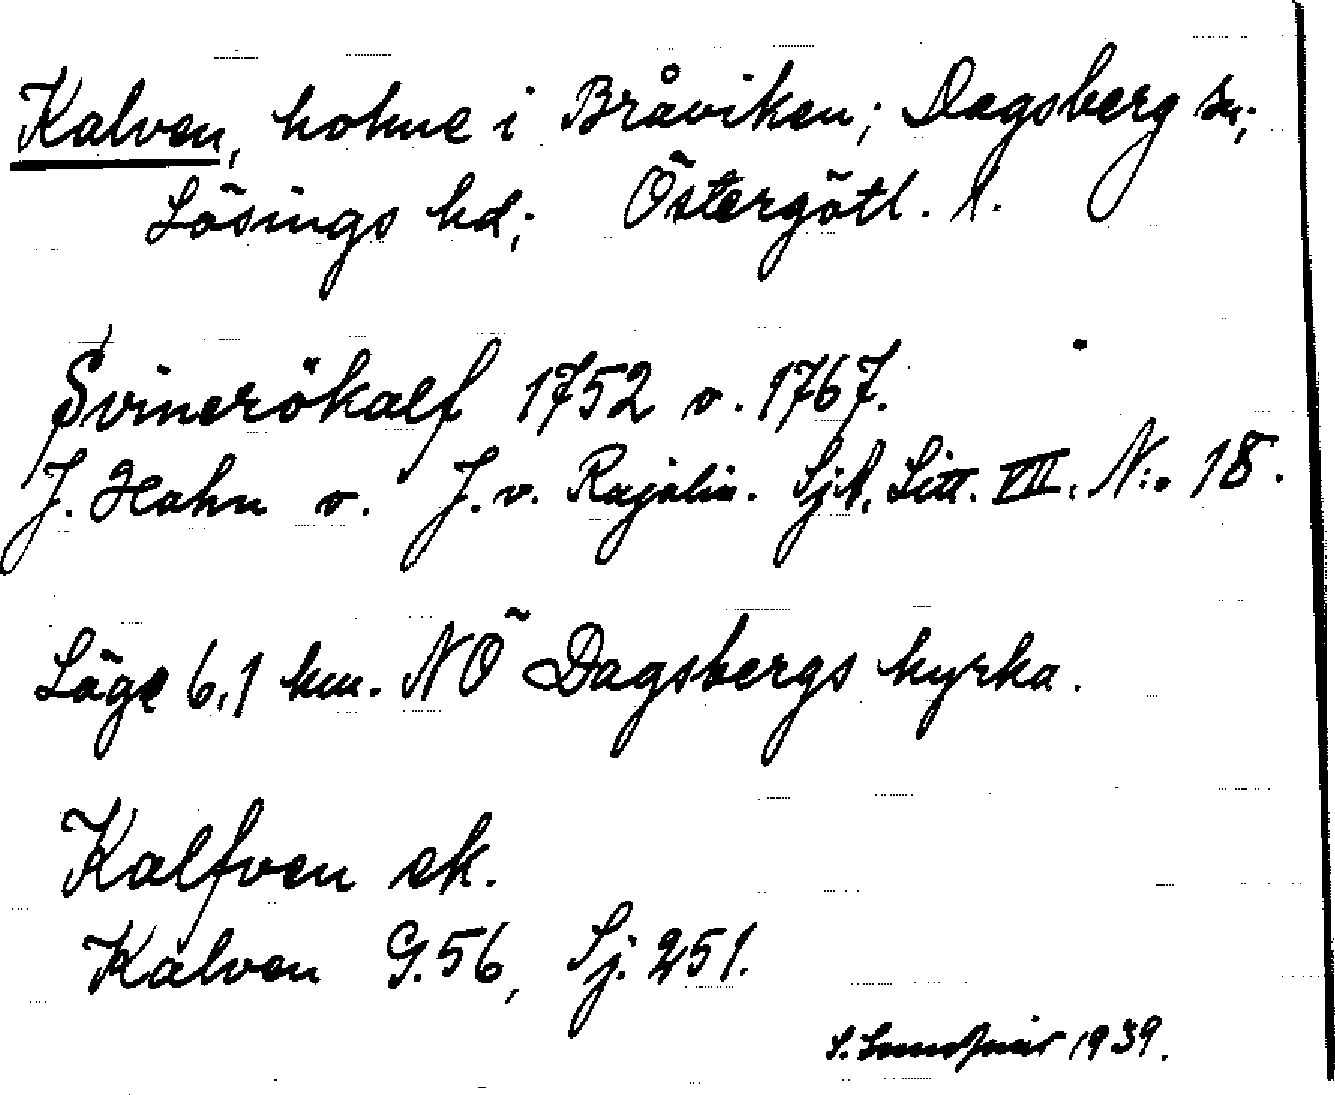 Kalven, holme i Bråviken; Dagsberg sn;
Lösings hd; Östergötl. l.
Svinerökalf 1752 o. 1767.
J. Hahn o. J. v. Rajalin. SjA. Litt. VII. N:o 18.
Läge 6,1 km. NÖ Dagsbergs kyrka.
Kalfven ek.
Kalven G.56, Sj. 251.
1939.